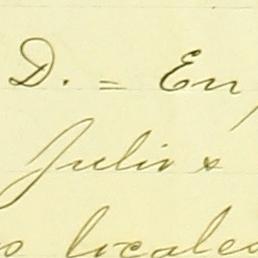 D. = En
Julio
locales